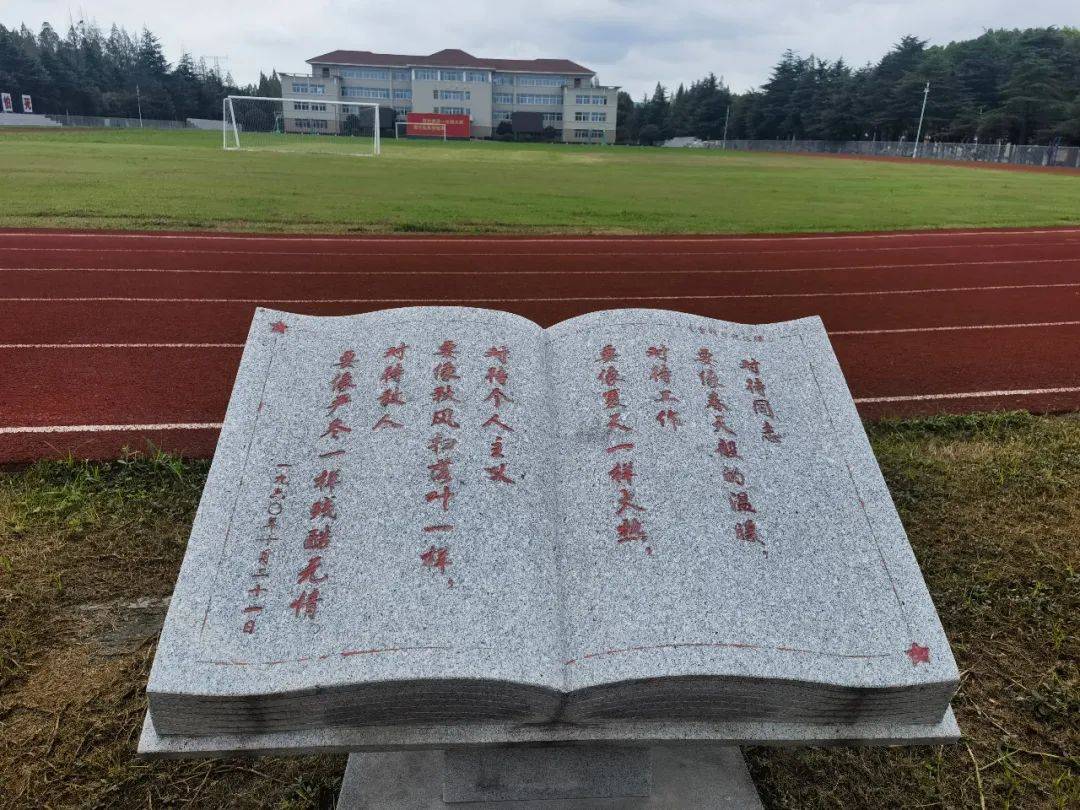 对待同志
要像春天般的温暖，
对待工作
要像夏天一样火热，
对待个人主义
要像秋风扫落叶一样，
对待敌人
要像严冬一样残酷无情。
一九六〇年十月二十一日